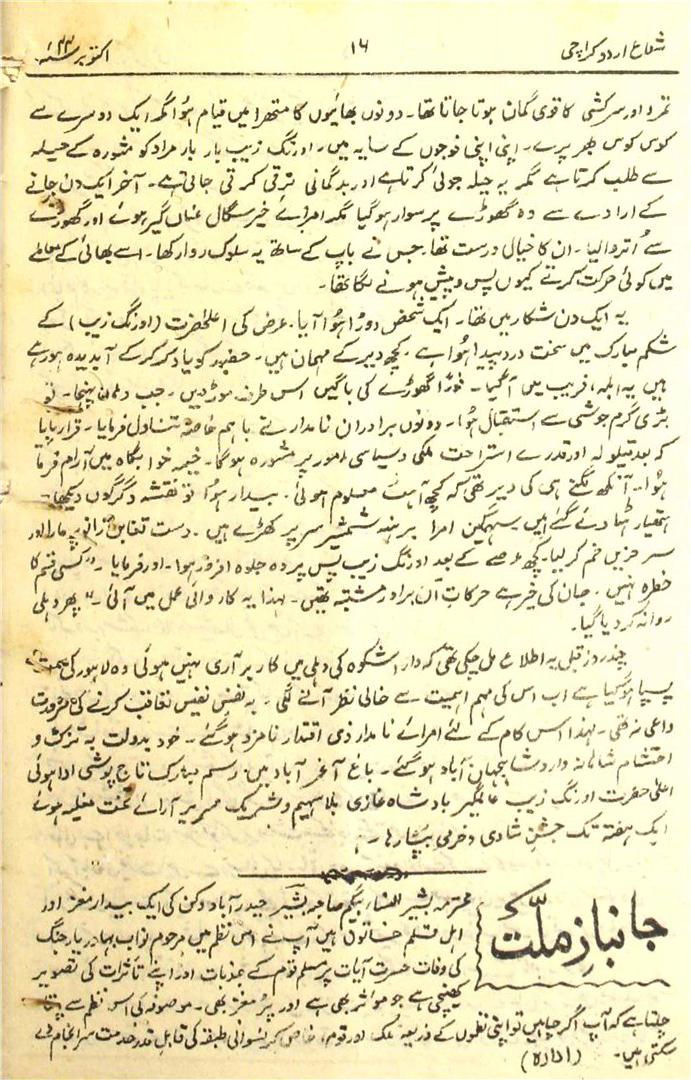 شعاع اردو کراچی ۱۶ اکتوبر سنہ ۴۴ء
تمرد اور سرکشی کا قوی گمان ہوتا جاتا تھا۔ دونوں بھائیوں کا متھرا میں قیام ہؤا مگر ایک دوسرے سے
کوس کوس بھر پرے۔ اپنی اپنی فوجوں کے سایہ میں۔ اورنگ زیب بار بار مراد کو مشورہ کے حیلہ
سے طلب کرتا ہے مگر یہ حیلہ جوئی کرتا ہے اور بدگمانی ترقی کرتی جاتی ہے۔ آخر ایک دن جانے
کے ارادے سے وہ گھوڑے پر سوار ہوگیا مگر امرائے خیر سگال عناں گیر ہوئے اور گھوڑے
سے اُتروا لیا۔ ان کا خیال درست تھا۔ جس نے باپ کے ساتھ یہ سلوک روا رکھا۔ اسے بھائی کے معاملے
میں کوئی حرکت کرتے کیوں پس و پیش ہونے لگا تھا۔
یہ ایک دن شکار میں تھا۔ ایک شخص دوڑا ہؤا آیا۔ عرض کی اعلحٰضرت (اورنگ زیب) کے
شکم مبارک میں سخت درد پیدا ہؤا ہے۔ کچھ دیر کے مہمان ہیں۔ حضور کو یاد کر کر کے آبدیدہ ہو رہے
ہیں یہ ابلہ، فریب میں آگیا۔ فوراً گھوڑے کی باگیں اس طرف موڑ دیں۔ جب وہاں پہنچا۔ تو
بڑی گرم جوشی سے استقبال ہؤا۔ دونوں برادران نامدار نے باہم خاصہ تناول فرمایا۔ قرار پایا
کہ بعد قیلولہ اور قدرے استراحت ملکی و سیاسی امور پر مشورہ ہوگا۔ خیمہ خوابگاہ میں آرام فرما
ہؤا۔ آنکھ لگتے ہی کی دیر تھی کہ کچھ آہٹ معلوم ہوئی۔ بیدار ہؤا تو نقشہ دگرگوں دیکھا۔
ہتھیار ہٹا دئے گئے ہیں سہمگین امرا برہنہ شمشیر سر پر کھڑے ہیں۔ دست تغابن زانو پہ مارا اور
سر حزیں خم کر لیا۔ کچھ عرصے کے بعد اورنگ زیب پس پردہ جلوہ افروز ہوا۔ اور فرمایا۔ "کسی قسم کا
خطرہ نہیں۔ جان کی خیر ہے حرکات آں برادر مشتبہ تھیں۔ لہذا یہ کاروائی عمل میں آئی۔" پھر دہلی
روانہ کر دیا گیا۔
چند روز قبل یہ اطلاع مل چکی تھی کہ دارا شکوہ کی دہلی میں کار برآری نہیں ہوئی وہ لاہور کی سمت
پسپا ہوگیا ہے اب اس کی مہم اہمیت سے خالی نظر آنے لگی۔ بہ نفس نفیس تعاقب کرنے کی ضرورت
داعی نہ تھی۔ لہذا اس کام کے لئے امرائے نامدار ذی اقتدار نامزد ہوگئے۔ خود بدولت بہ تزک و
احتشام شاہانہ وارد شاہجہاں آباد ہوگئے۔ باغ آغر آباد میں رسم مبارک تاج پوشی ادا ہوئی
اعلیٰ حضرت اورنگ زیب عالمگیر بادشاہ غازی بلا سہیم و شریک سریر آرائے تخت مغلیہ ہوئے
ایک ہفتہ تک جشن شادی و خرمی بپا رہا۔
جانبازِ ملّت
محترمہ بشیر النساء بیگم صاحبہ بشیر حیدرآباد دکن کی ایک بیدار مغز اور
اہل قلم خاتون ہیں آپ نے اس نظم میں مرحوم نواب بہادر یار جنگ
کی وفات حسرت آیات پر مسلم قوم کے جذبات اور اپنے تأثرات کی تصویر
کھینچی ہے جو مؤثر بھی ہے اور پُر مغز بھی۔ موصوفہ کی اس نظم سے پتا
چلتا ہے کہ آپ اگر چاہیں تو اپنی نظموں کے ذریعہ ملک اور قوم، خاص کر نسوانی طبقہ کی قابل قدر خدمت سرانجام دے
سکتی ہیں۔ (ادارہ)